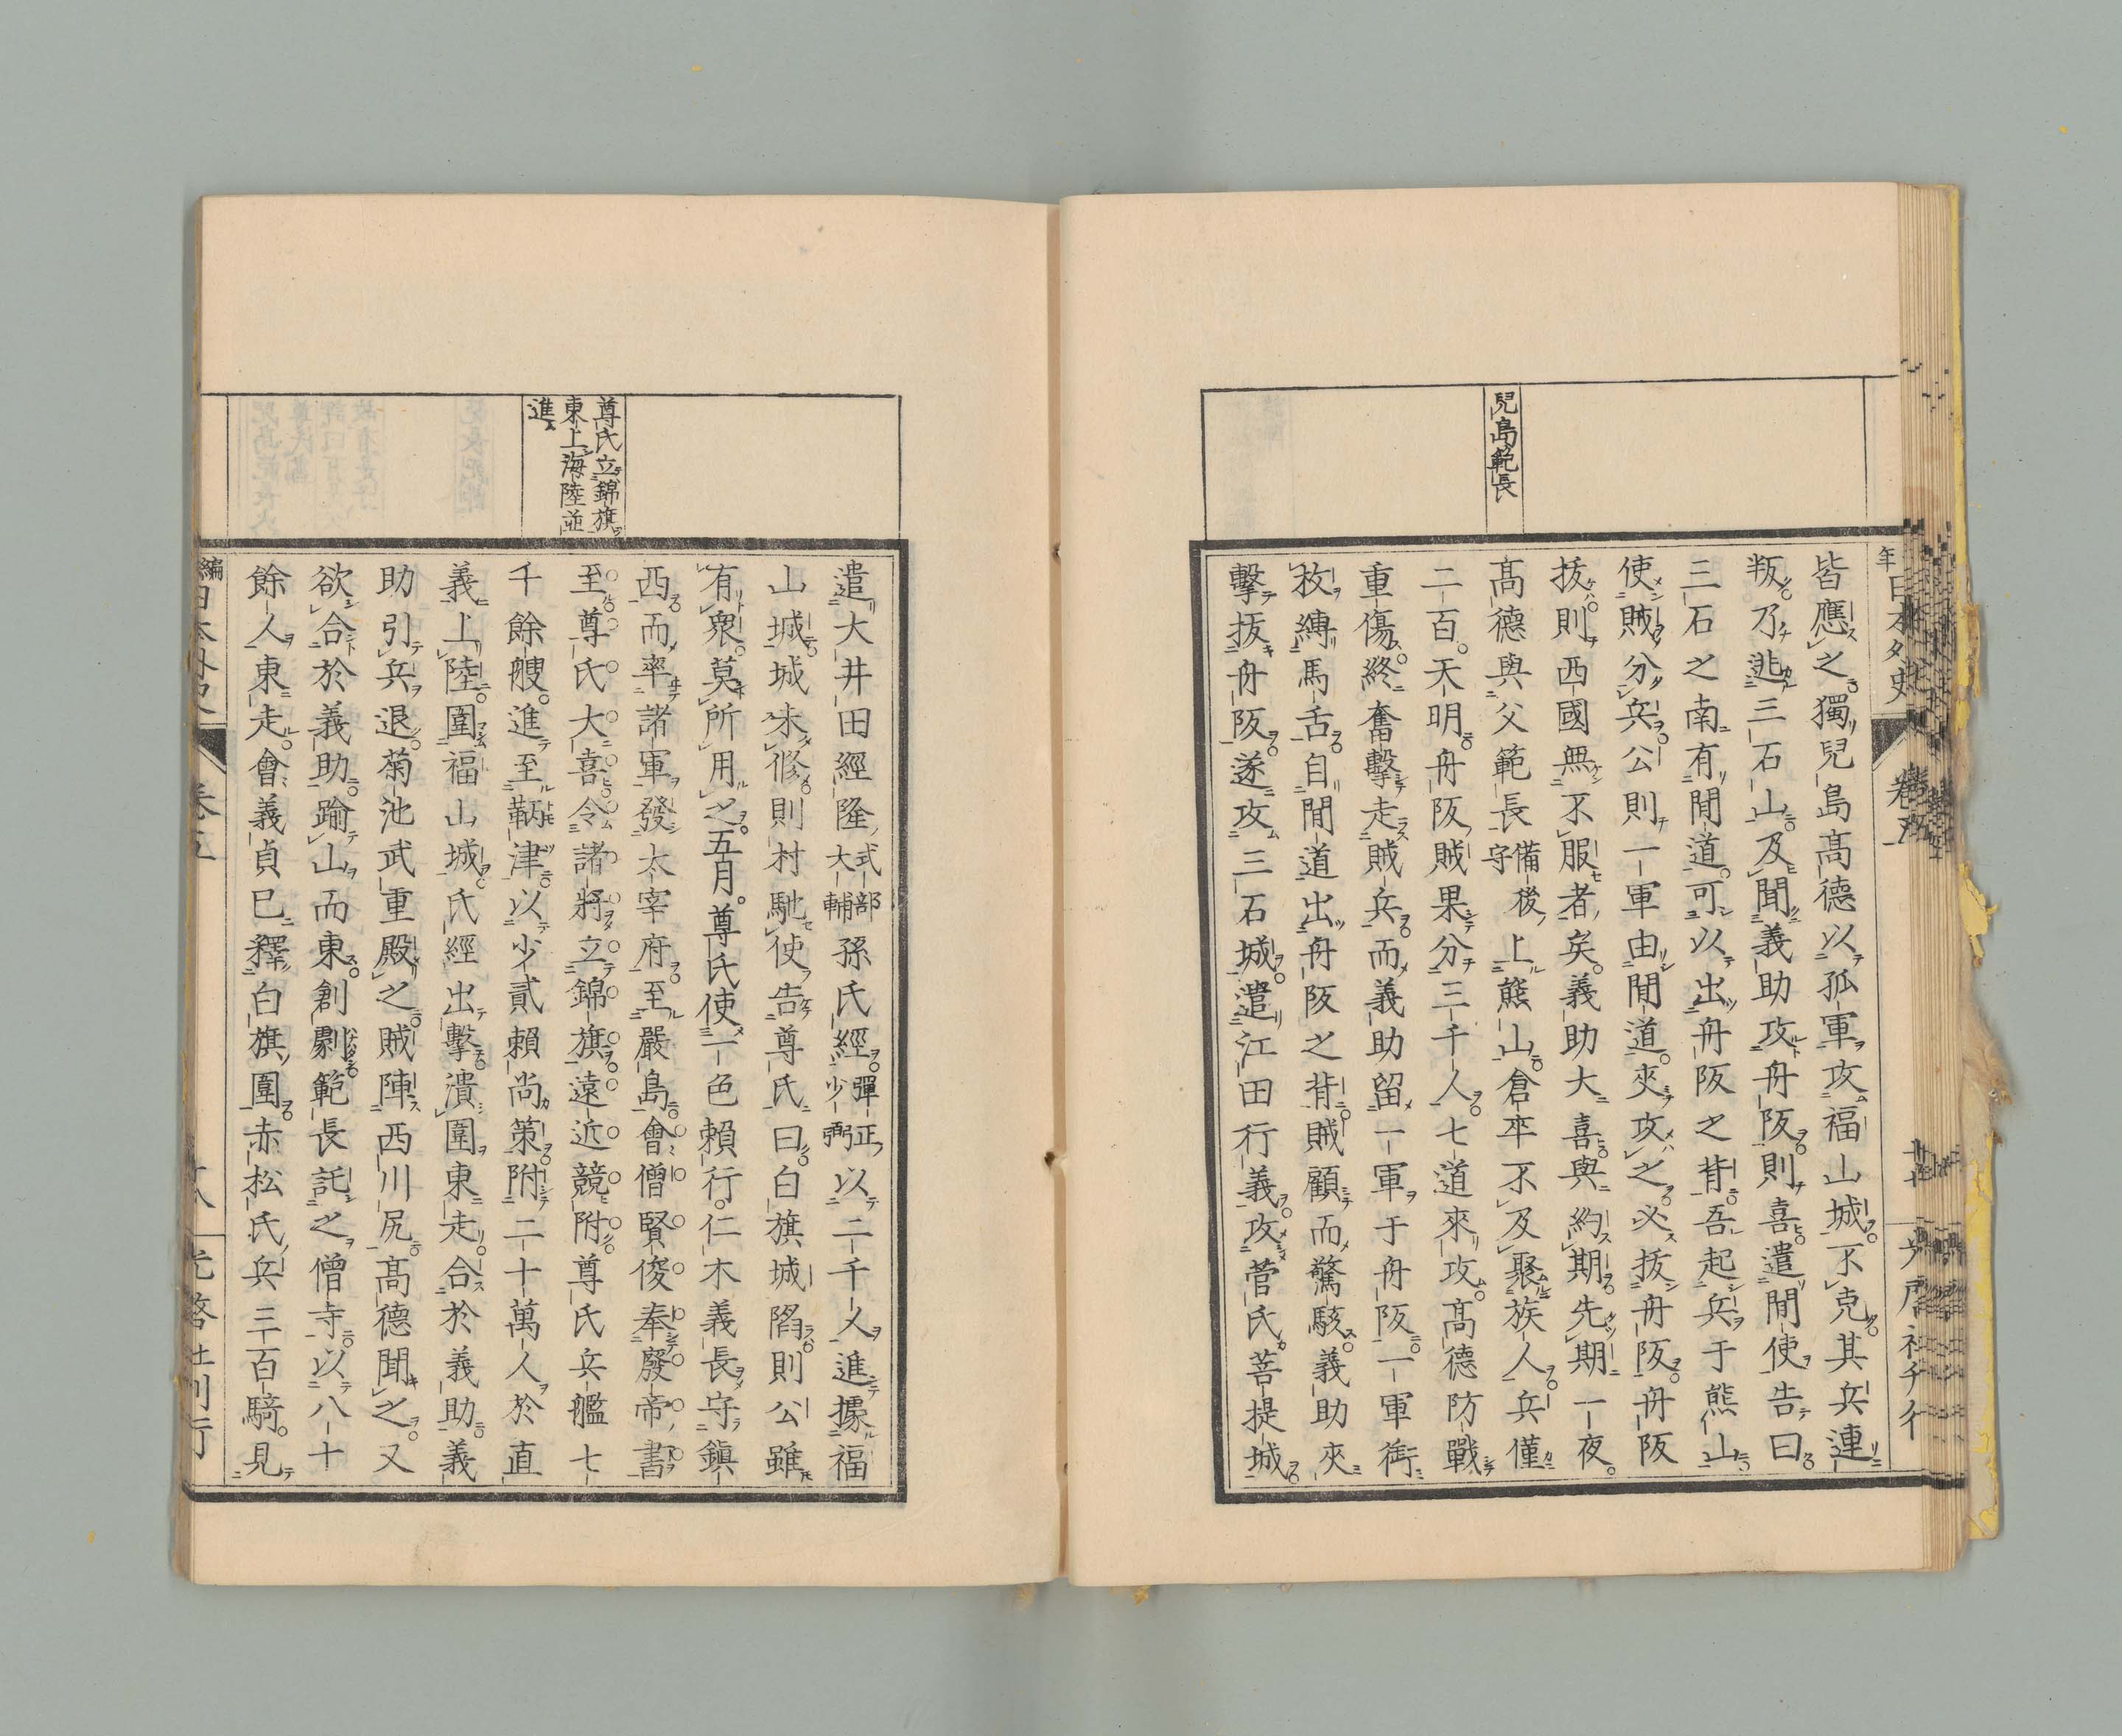 兒島範長
皆應之獨兒島髙德以孤軍攻福山城不克其兵連
叛乃逃三石山及聞義助攻舟阪則喜遣間使告曰
三石之南有間道可以出舟阪之背吾起兵于熊山
使賊分兵公則一軍由間道夾攻之必拔舟阪舟阪
拔則西國無不服者矣義助大喜與約期先期一夜
髙德與父範長備後守上熊山倉卒不及聚族人兵僅
二百天明舟阪賊果分三千人七道來攻髙德防戰
重傷終奮擊走賊兵而義助留一軍于舟阪一軍銜
枚縛馬舌自間道出舟阪之背賊顧而驚駭義助夾
擊拔舟阪遂攻三石城遣江田行義攻菅氏菩提城
尊氏立錦旗
東上海陸並
進
遣大井田經隆式部大輔孫氏經彈正少弼以二千人進據福
山城城未修則村馳使告尊氏曰白旗城陷則公雖
有衆莫所用之五月尊氏使一色賴行仁木義長守鎭
西而率諸軍發太宰府至嚴島會僧賢俊奉廢帝書
至尊氏大喜令諸將立錦旗遠近競附尊氏兵艦七
千餘艘進至鞆津以少貳賴尚策附二十萬人於直
義上陸圍福山城氏經出擊潰圍東走合於義助義
助引兵退菊池武重殿之賊陣西川尻髙德聞之又
欲合於義助踰山而東創劇範長託之僧寺以八十
餘人東走會義貞已釋白旗圍赤松氏兵三百騎見